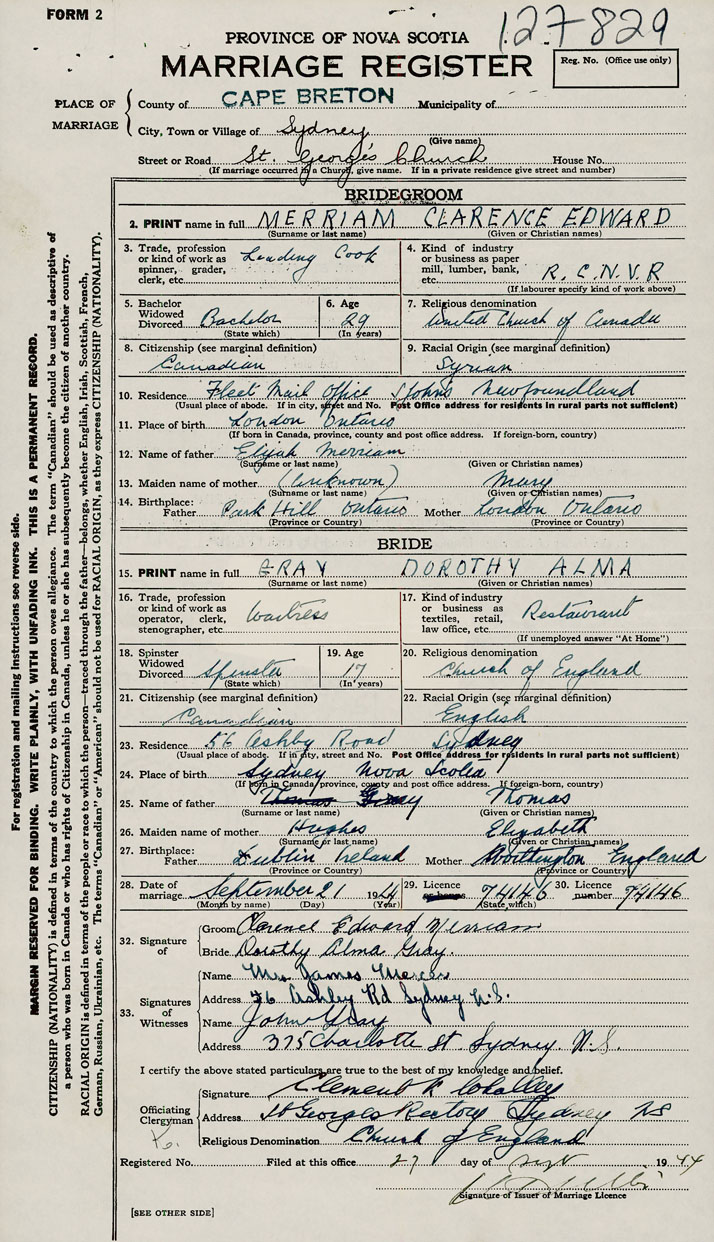 FORM 2
127-829
PROVINCE OF NOVA SCOTIA
MARRIAGE REGISTER
Reg. No. (Office use only)
PLACE OF MARRIAGE
County of CAPE BRETON Municipality of
City, Town or Village of Sydney
(Give name)
Street or Road St. George's Church House No.
(If marriage occurred in a Church, give name. If in a private residence give street and number)
BRIDEGROOM
2. PRINT name in full MERRIAM CLARENCE EDWARD
(Surname or last name) (Given or Christian names)
3. Trade, profession or kind of work as spinner, grader, clerk, etc. Leading Cook
4. Kind of industry or business as paper mill, lumber, bank, etc. R.C.N.V.R
(If labourer specify kind of work above)
5. Bachelor Widowed Divorced Bachelor
(State which)
6. Age 29
(In years)
7. Religious denomination
United Church of Canada
8. Citizenship (see marginal definition)
Canadian
9. Racial Origin (see marginal definition)
Syrian
10. Residence Fleet Mail Office St Johns Newfoundland
(Usual place of abode. If in city, street and No. Post Office address for residents in rural parts not sufficient)
11. Place of birth London Ontario
(If born in Canada, province, county and post office address. If foreign-born, country)
12. Name of father Elijah Merriam
(Surname or last name) (Given or Christian names)
13. Maiden name of mother (Unknown) Mary
(Surname or last name) (Given or Christian names)
14. Birthplace: Father Park Hill Ontario Mother London Ontario
(Province or Country) (Province or Country)
BRIDE
15. PRINT name in full GRAY DOROTHY ALMA
(Surname or last name) (Given or Christian names)
16. Trade, profession or kind of work as operator, clerk, stenographer, etc. Waitress
17. Kind of industry or business as textiles, retail, law office, etc. Restaurant
(If unemployed answer "At Home")
18. Spinster Widowed Divorced Spinster
(State which)
19. Age 17
(In years)
20. Religious denomination
Church of England
21. Citizenship (see marginal definition)
Canadian
22. Racial Origin (see marginal definition)
English
23. Residence 56 Ashby Road Sydney
(Usual place of abode. If in city, street and No. Post Office address for residents in rural parts not sufficient)
24. Place of birth Sydney Nova Scotia
(If born in Canada, province, county and post office address. If foreign-born, country)
25. Name of father Thomas
(Surname or last name) (Given or Christian names)
26. Maiden name of mother Hughes Elizabeth
(Surname or last name) (Given or Christian names)
27. Birthplace: Father Dublin Ireland Mother Worthington England
(Province or Country) (Province or Country)
28. Date of marriage September 21 1944
(Month by name) (Day) (Year)
29. Licence 74146
(State which)
30. Licence number 74146
32. Signature of
Groom Clarence Edward Merriam
Bride Dorothy Alma Gray.
33. Signatures of Witnesses
Name Mrs James Mercer
Address 76 Ashley Rd Sydney N.S.
Name John Gray
Address 375 Charlotte St. Sydney. N.S.
I certify the above stated particulars are true to the best of my knowledge and belief.
Officiating Clergyman
Signature Clement
Address St Georges Rectory Sydney NS
Religious Denomination Church of England
Registered No. Filed at this office 27 day of Sept 1944
Signature of Issuer of Marriage Licence
[SEE OTHER SIDE]
For registration and mailing instructions see reverse side.
MARGIN RESERVED FOR BINDING. WRITE PLAINLY, WITH UNFADING INK. THIS IS A PERMANENT RECORD.
CITIZENSHIP (NATIONALITY) is defined in terms of the country to which the person owes allegiance. The term "Canadian" should be used as descriptive of
a person who was born in Canada or who has rights of Citizenship in Canada, unless he or she has subsequently become the citizen of another country.
RACIAL ORIGIN is defined in terms of the people or race to which the person—traced through the father—belongs, whether English, Irish, Scottish, French,
German, Russian, Ukrainian, etc. The terms "Canadian" or "American" should not be used for RACIAL ORIGIN, as they express CITIZENSHIP (NATIONALITY).